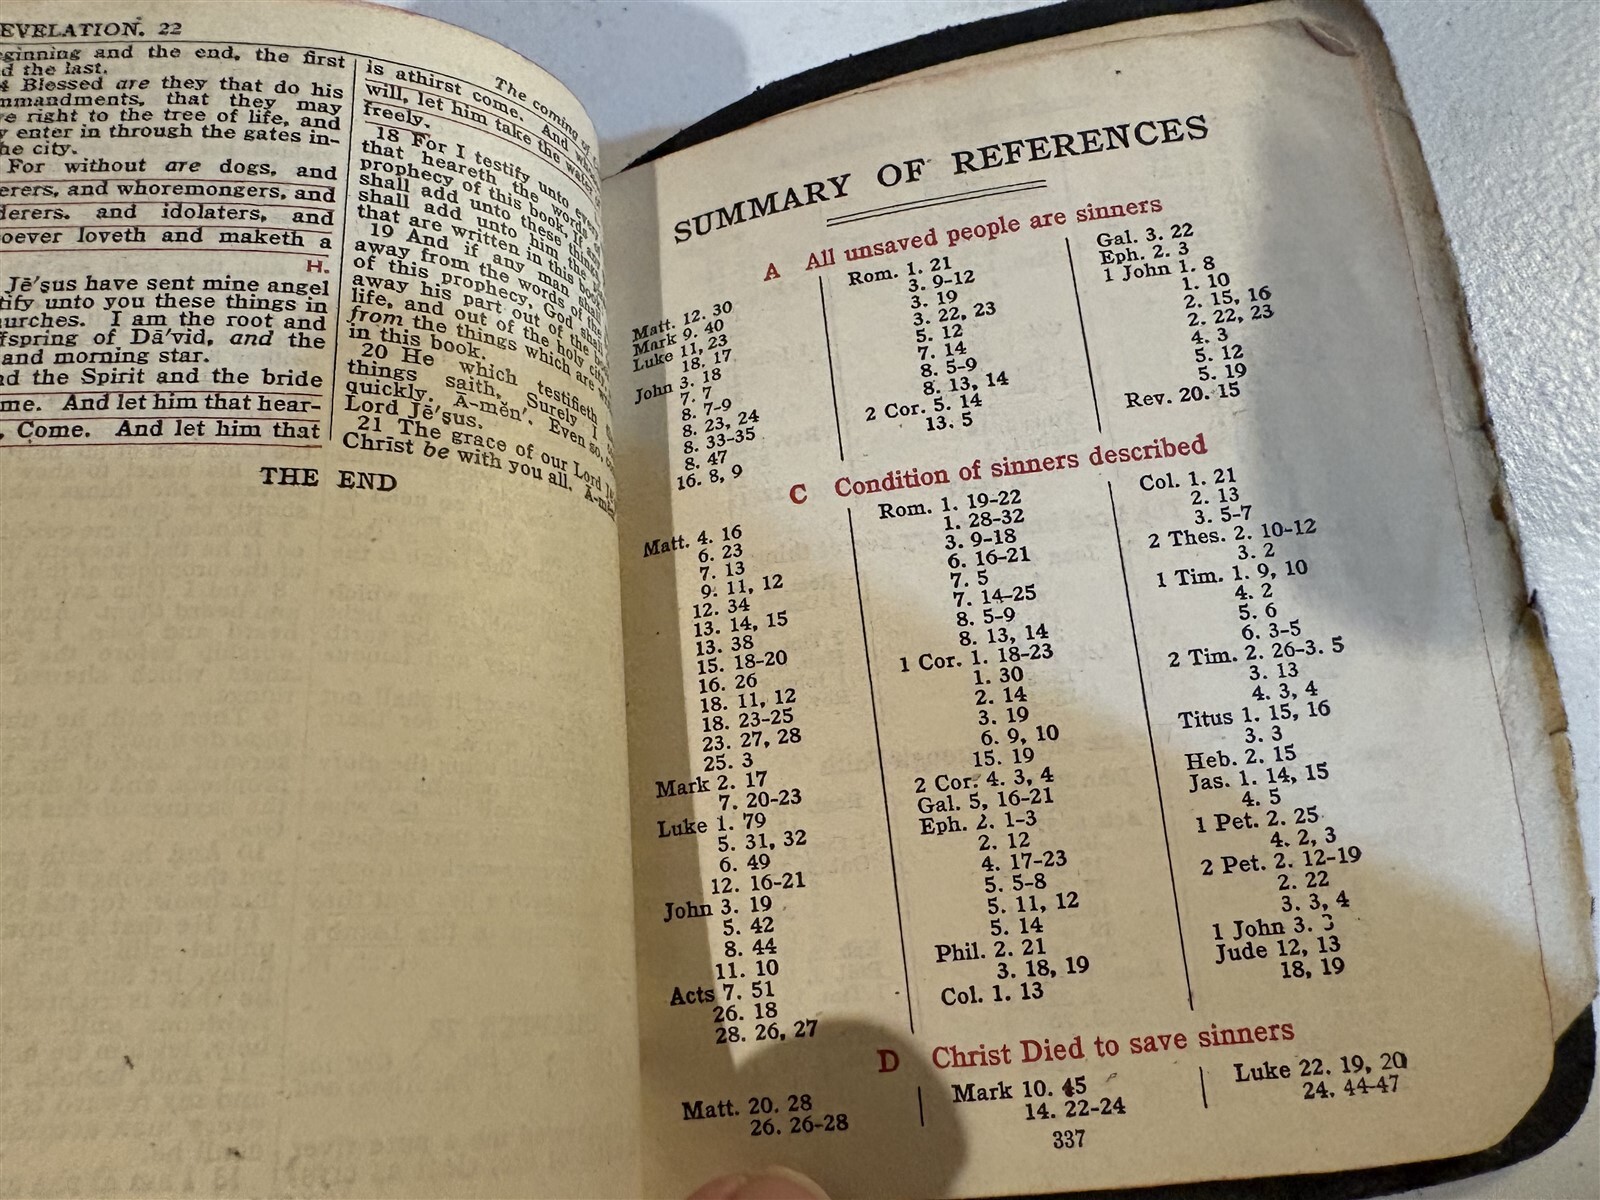 EVELATION. 22
The coming of
eginning and the end, the first
d the last.
4 Blessed are they that do his
mmandments, that they may
ve right to the tree of life, and
y enter in through the gates in-
he city.
For without are dogs, and
erers, and whoremongers, and
derers, and idolaters, and
oever loveth and maketh a
H.
Jē'ṣus have sent mine angel
tify unto you these things in
urches. I am the root and
fspring of Dā'vid, and the
and morning star.
d the Spirit and the bride
me. And let him that hear-
, Come. And let him that
is athirst come. And who
will, let him take the water
freely.
18 For I testify unto every
that heareth the words of
prophecy of this book, If any
shall add unto these things
shall add unto him the
that are written in this book
19 And if any man shall
away from the words of the
of this prophecy, God shall
away his part out of the boo
life, and out of the holy city,
from the things which are wri
in this book.
20 He which testifieth th
things saith, Surely I co
quickly. Ā-mĕn'. Even so, co
Lord Jē'ṣus.
21 The grace of our Lord Jē'
Christ be with you all. Ā-mĕn
THE END
SUMMARY OF REFERENCES
A All unsaved people are sinners
Matt. 12. 30
Mark 9. 40
Luke 11, 23
18. 17
John 3. 18
7. 7
8. 7-9
8. 23, 24
8. 33-35
8. 47
16. 8, 9
Rom. 1. 21
3. 9-12
3. 19
3. 22, 23
5. 12
7. 14
8. 5-9
8. 13, 14
2 Cor. 5. 14
13. 5
Gal. 3. 22
Eph. 2. 3
1 John 1. 8
1. 10
2. 15, 16
2. 22, 23
4. 3
5. 12
5. 19
Rev. 20. 15
C Condition of sinners described
Matt. 4. 16
6. 23
7. 13
9. 11, 12
12. 34
13. 14, 15
13. 38
15. 18-20
16. 26
18. 11, 12
18. 23-25
23. 27, 28
25. 3
Mark 2. 17
7. 20-23
Luke 1. 79
5. 31, 32
6. 49
12. 16-21
John 3. 19
5. 42
8. 44
11. 10
Acts 7. 51
26. 18
28. 26, 27
Rom. 1. 19-22
1. 28-32
3. 9-18
6. 16-21
7. 5
7. 14-25
8. 5-9
8. 13, 14
1 Cor. 1. 18-23
1. 30
2. 14
3. 19
6. 9, 10
15. 19
2 Cor. 4. 3, 4
Gal. 5, 16-21
Eph. 2. 1-3
2. 12
4. 17-23
5. 5-8
5. 11, 12
5. 14
Phil. 2. 21
3. 18, 19
Col. 1. 13
Col. 1. 21
2. 13
3. 5-7
2 Thes. 2. 10-12
3. 2
1 Tim. 1. 9, 10
4. 2
5. 6
6. 3-5
2 Tim. 2. 26-3. 5
3. 13
4. 3, 4
Titus 1. 15, 16
3. 3
Heb. 2. 15
Jas. 1. 14, 15
4. 5
1 Pet. 2. 25
4. 2, 3
2 Pet. 2. 12-19
2. 22
3. 3, 4
1 John 3. 3
Jude 12, 13
18, 19
D Christ Died to save sinners
Matt. 20. 28
26. 26-28
Mark 10. 45
14. 22-24
Luke 22. 19, 20
24. 44-47
337